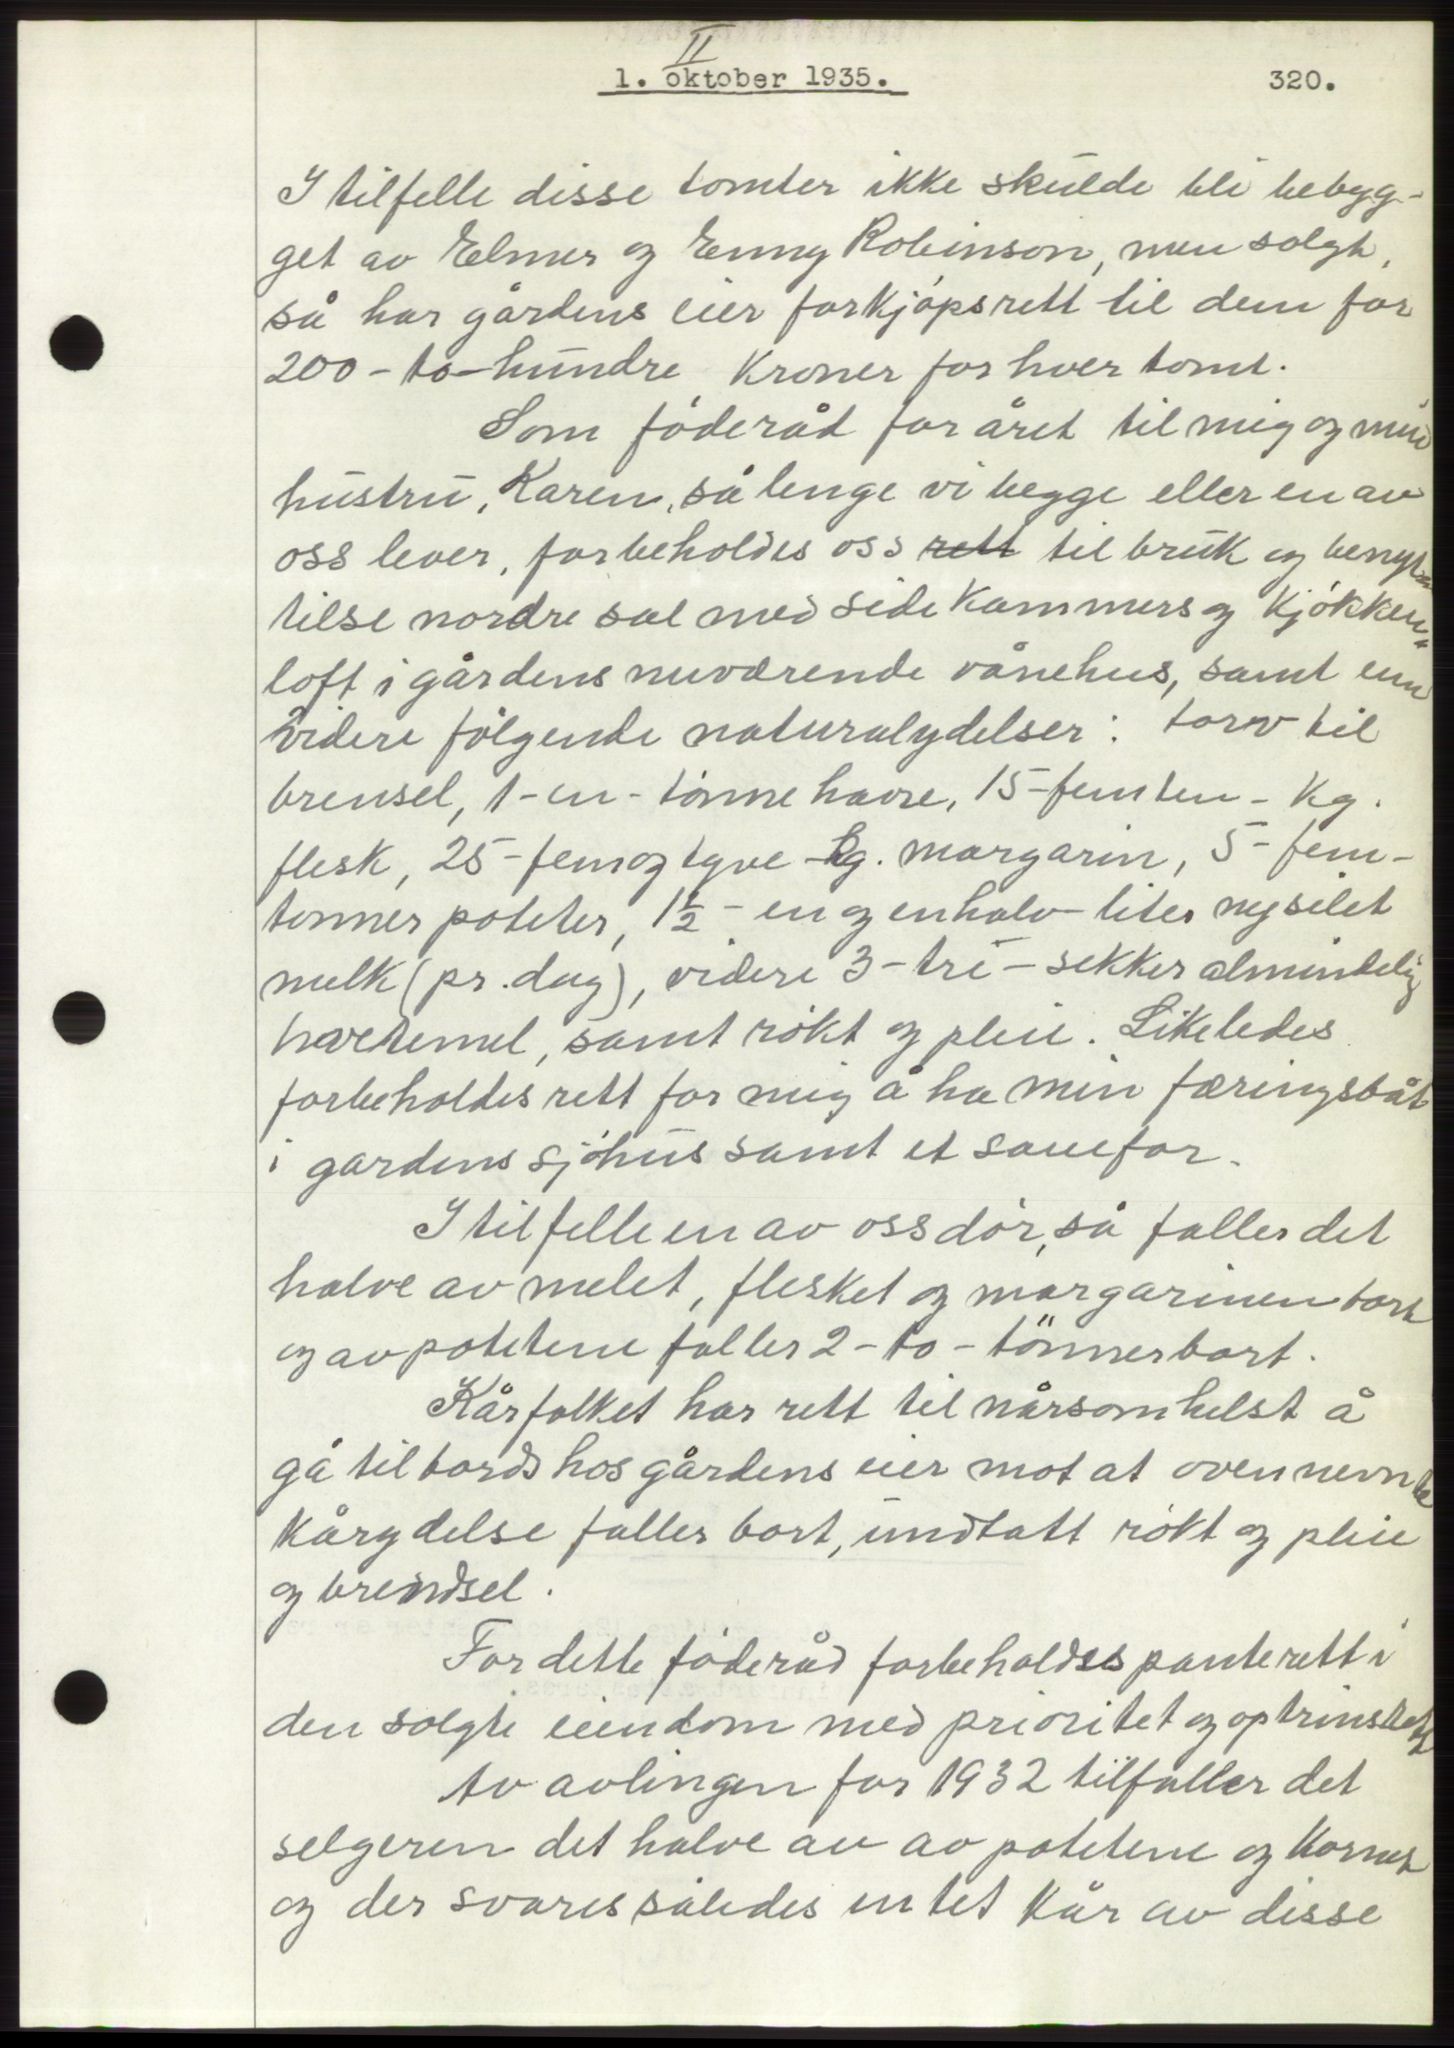 II
1. oktober 1935.
320.
I tilfelle disse tomter ikke skulde bli bebyg-
get av Elmer og Enny Robinson, men solgt,
så har gårdens eier forkjøpsrett til dem for
200 - to-hundre kroner for hver tomt.
Som føderåd for året til mig og min
hustru, Karen, så lenge vi begge eller en av
oss lever, forbeholdes oss rett til bruk og benyt-
telse nordre sal med sidekammers og kjøkken-
loft i gårdens nuværende vånehus, samt enn
videre følgende naturalydelser: torv til
brensel, 1-en-tønne havre, 15-femten- kg.
flesk, 25-femogtyve-kg. margarin, 5-fem-
tønner poteter, 1½ - en og en halv- liter nysilet
melk (pr. dag), videre 3-tre- sekker almindelig
hvetemel, samt røkt og pleie. Likeledes
forbeholdes rett for mig å ha min færingsbåt
i gardens sjøhus samt et sauefor.
I tilfelle en av oss dør, så faller det
halve av melet, flesket og margarinen bort
og av potetene faller 2-to-tönner bort.
Kårfolket har rett til nårsomhelst å
gå til bords hos gårdens eier mot at ovennevnte
kårydelse faller bort, undtatt røkt og pleie
og brendsel.
For dette føderåd forbeholdes panterett i
den solgte eiendom med prioritet og optrinsrett
Av avlingen for 1932 tilfaller det
selgeren det halve av av potetene og kornet
og der svares således intet kår av disse